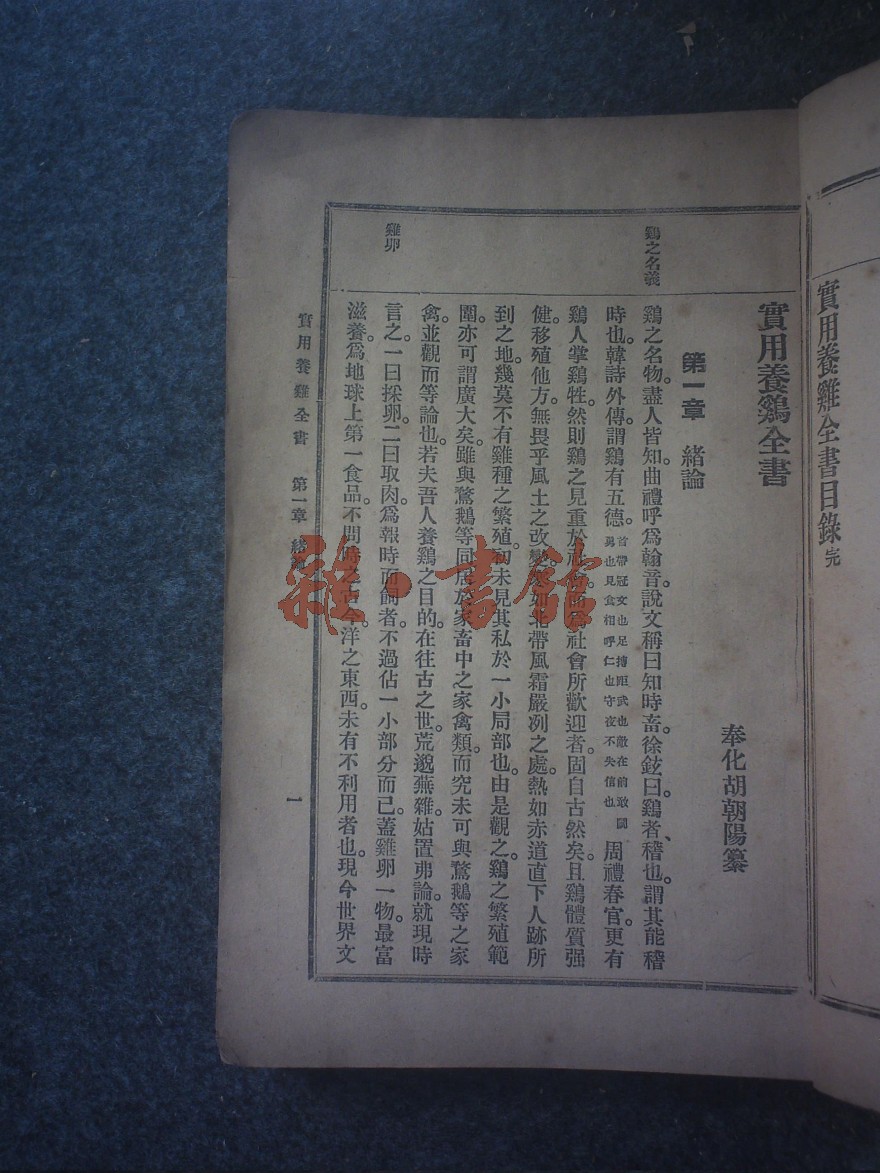 實用養雞全書目錄完
實用養鷄全書
奉化胡朝陽纂
第一章　緒論
鷄之名義
鷄之名物。盡人皆知。曲禮呼爲翰音。說文稱曰知時畜。徐鉉曰。鷄者、稽也。謂其能稽
時也。韓詩外傳。謂鷄有五德。首帶冠文也足搏距武也敵在前敢鬬勇也見食相呼仁也守夜不失信也周禮春官。更有
鷄人掌鷄牲。然則鷄之見重於社會。而爲社會所歡迎者。固自古然矣。且鷄體質强
健。移殖他方。無畏乎風土之改變。寒如北帶風霜嚴冽之處。熱如赤道直下人跡所
到之地。幾莫不有雞種之繁殖。初未見其私於一小局部也。由是觀之。鷄之繁殖範
圍。亦可謂廣大矣。雖與鶩鵝等同居於家畜中之家禽類。而究未可與鶩鵝等之家
禽並觀而等論也。若夫吾人養鷄之目的。在往古之世。荒邈蕪雜。姑置弗論。就現時
言之。一曰採卵。二曰取肉。爲報時而飼者。不過佔一小部分而已。蓋雞卵一物。最富
滋養。爲地球上第一食品。不問時之古今。洋之東西。未有不利用者也。現今世界文
雞卵
實用養雞全書　第一章　緒論
一
雜·書館